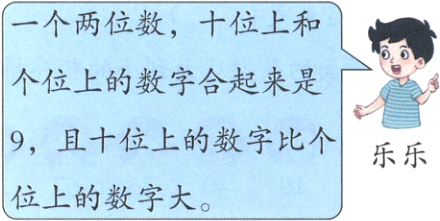 一个两位数，十位上和
个位上的数字合起来是
9，且十位上的数字比个
位上的数字大。
乐乐